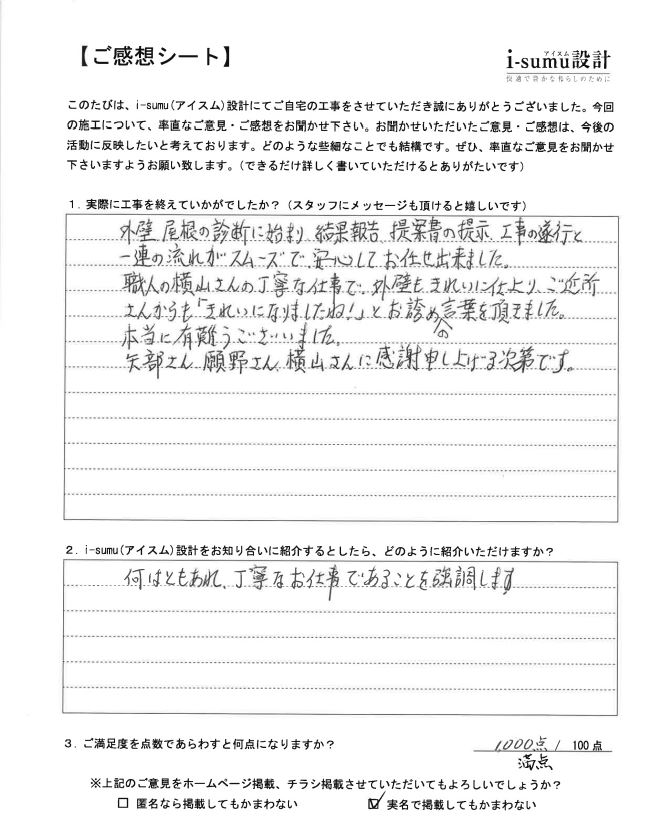 【ご感想シート】
アイスム
i-sumu設計
快適で豊かな暮らしのために
このたびは、i-sumu(アイスム)設計にてご自宅の工事をさせていただき誠にありがとうございました。今回
の施工について、率直なご意見・ご感想をお聞かせ下さい。お聞かせいただいたご意見・ご感想は、今後の
活動に反映したいと考えております。どのような些細なことでも結構です。ぜひ、率直なご意見をお聞かせ
下さいますようお願い致します。(できるだけ詳しく書いていただけるとありがたいです)
1. 実際に工事を終えていかがでしたか?(スタッフにメッセージも頂けると嬉しいです)
外壁、屋根の診断に始まり、結果報告、提案書の提示、工事の遂行と
一連の流れがスムーズで安心してお任せ出来ました。
職人の横山さんの丁寧な仕事で、外壁もきれいに仕上り、ご近所
さんからも「きれいになりましたね!」とお誉めの言葉を頂きました。
本当に有難うございました。
矢部さん、願野さん、横山さんに感謝申し上げる次第です。
2. i-sumu(アイスム)設計をお知り合いに紹介するとしたら、どのように紹介いただけますか?
何はともあれ、丁寧なお仕事であることを強調します
3. ご満足度を点数であらわすと何点になりますか?
1,000点 / 100点
満点
※上記のご意見をホームページ掲載、チラシ掲載させていただいてもよろしいでしょうか?
□ 匿名なら掲載してもかまわない ☑ 実名で掲載してもかまわない